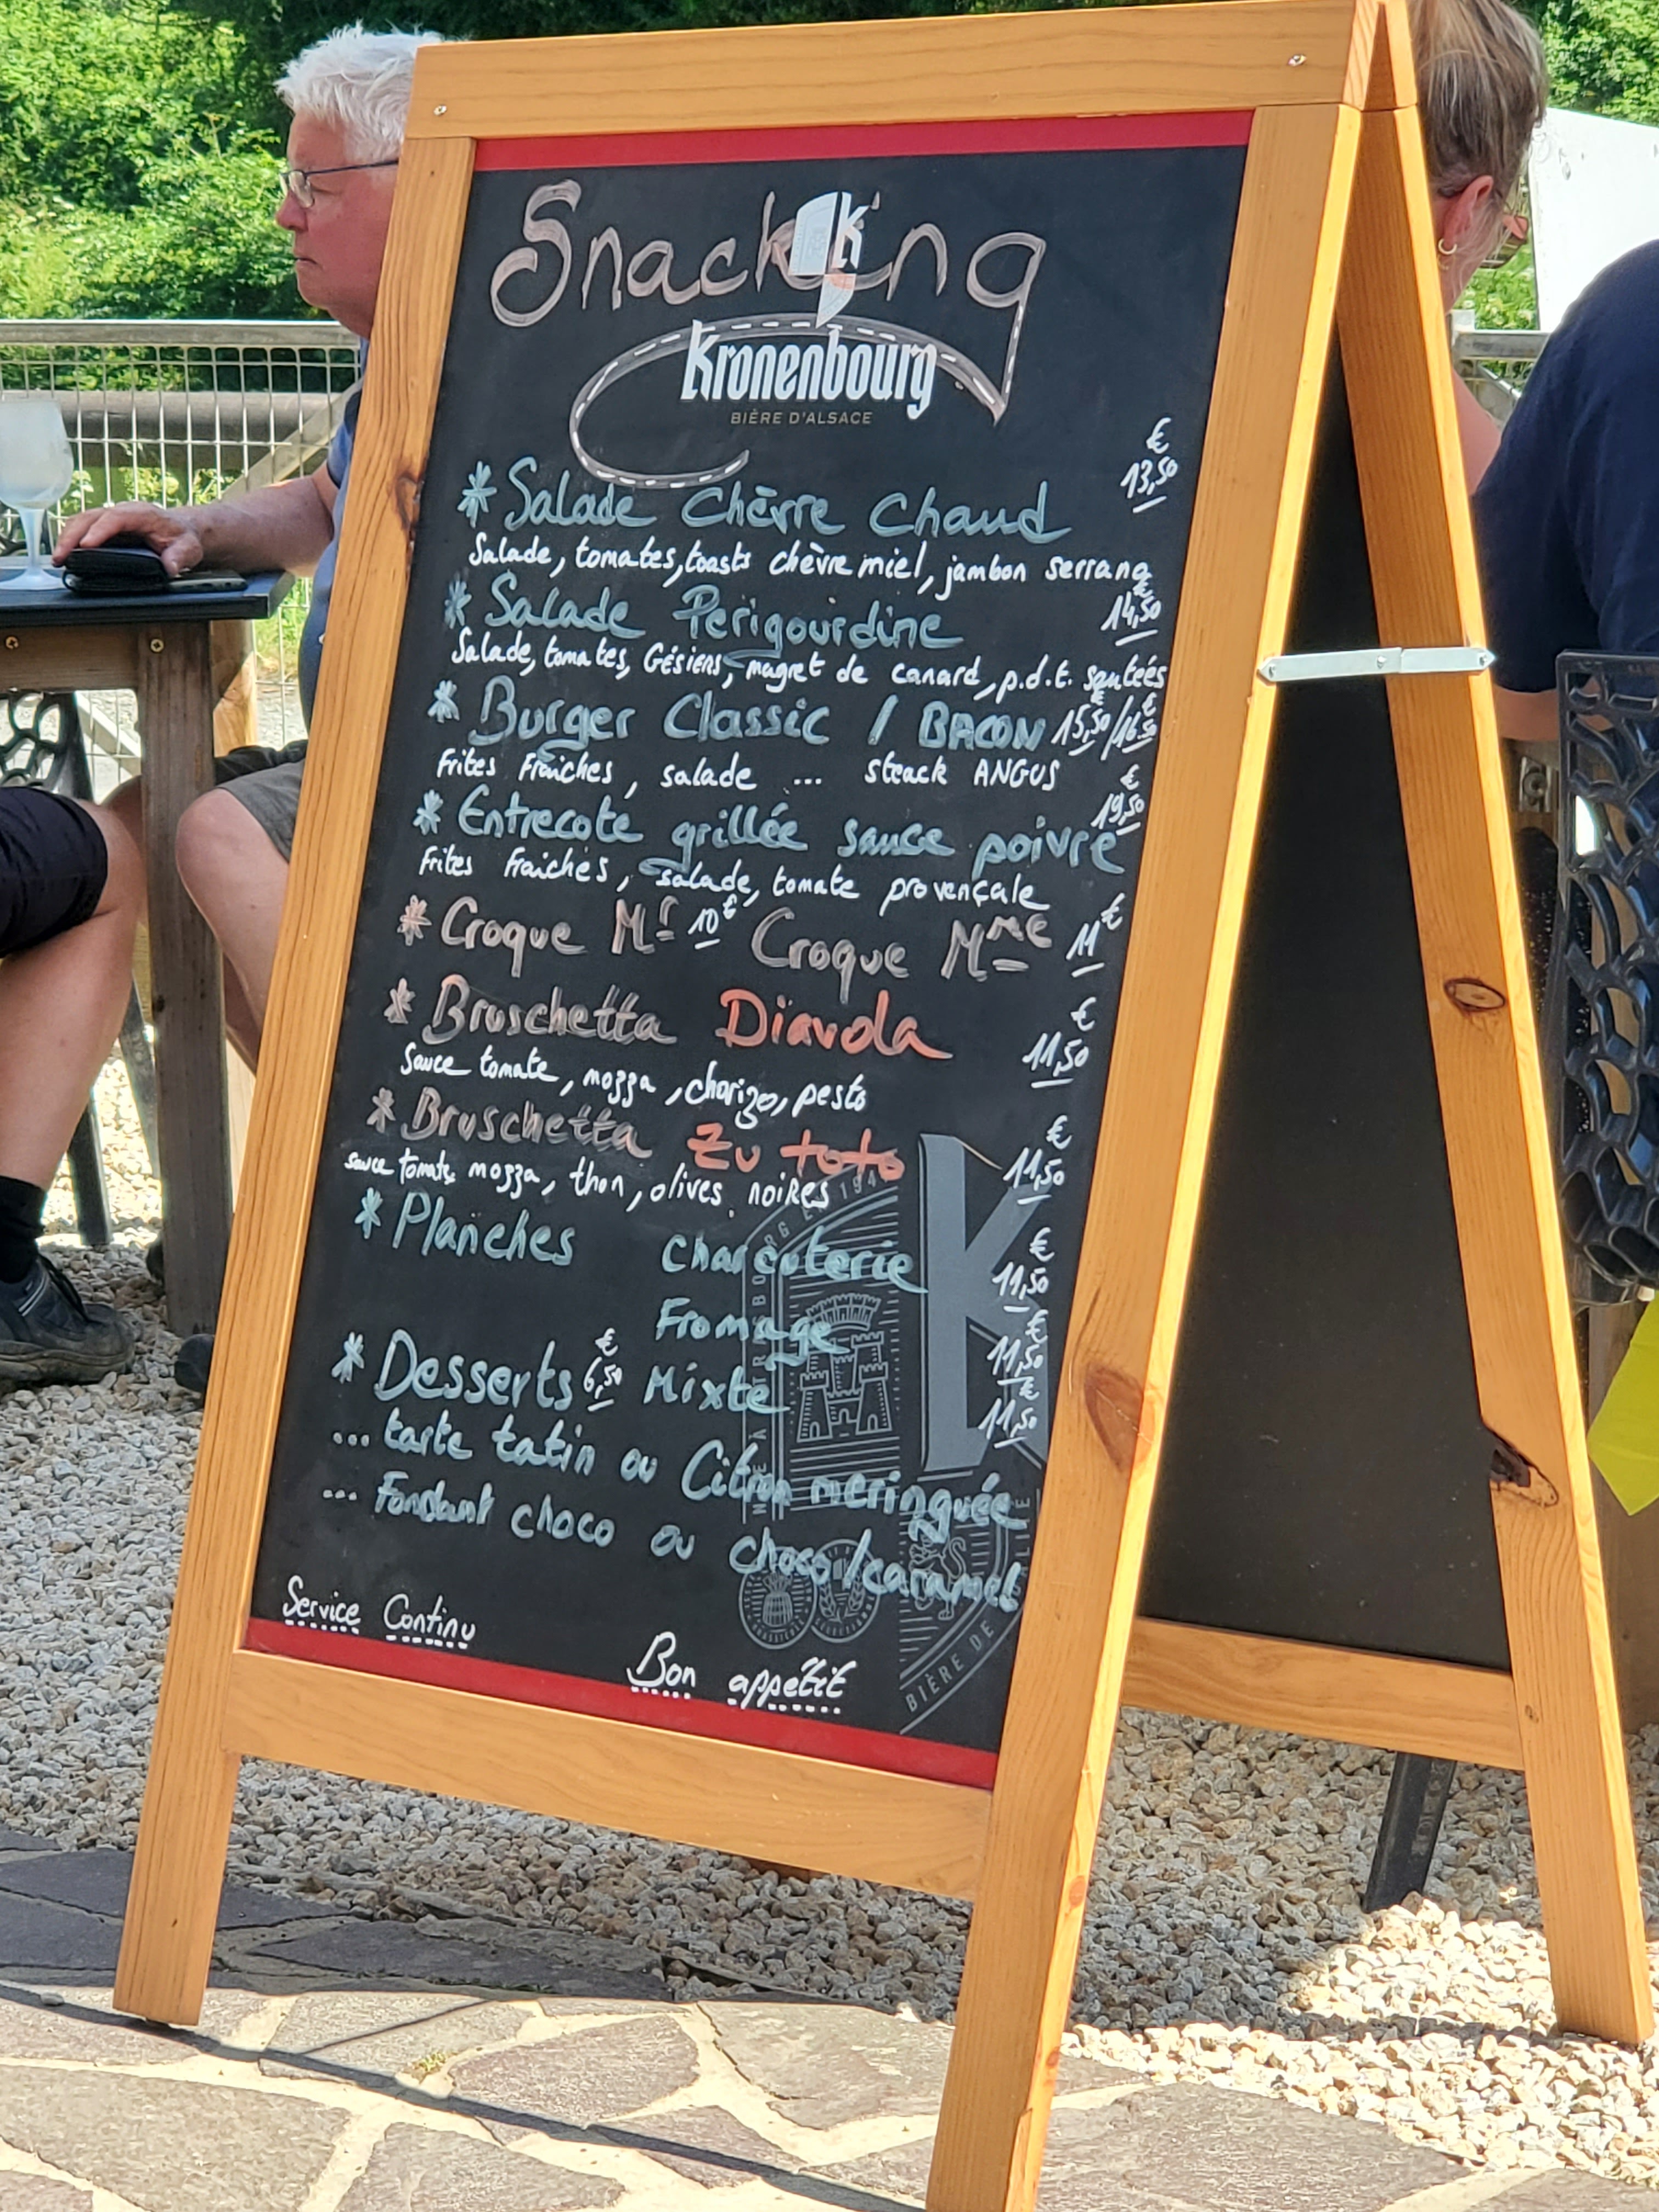 Snacking
K
Kronenbourg
BIÈRE D'ALSACE
* Salade Chèvre Chaud 13,50 €
Salade, tomates, toasts chèvre miel, jambon serrano
* Salade Perigourdine 14,50 €
Salade, tomates, Gésiers, magret de canard, p.d.t. sautées
* Burger Classic / BACON 15,50 €/16,50 €
Frites Fraiches, salade ... steack ANGUS
* Entrecote grillée sauce poivre 19,50 €
Frites Fraiches, salade, tomate provençale
* Croque Mr 10 € Croque Mme 11 €
* Bruschetta Diavola 11,50 €
Sauce tomate, mozza, chorizo, pesto
* Bruschetta Zu toto 11,50 €
sauce tomate, mozza, thon, olives noires
* Planches Charcuterie 11,50 €
Fromage 11,50 €
* Desserts 6,50 € Mixte 11,50 €
... tarte tatin ou Citron meringuée
... Fondant choco ou choco/caramel
Service Continu
Bon appétit
K
BIÈRE DE